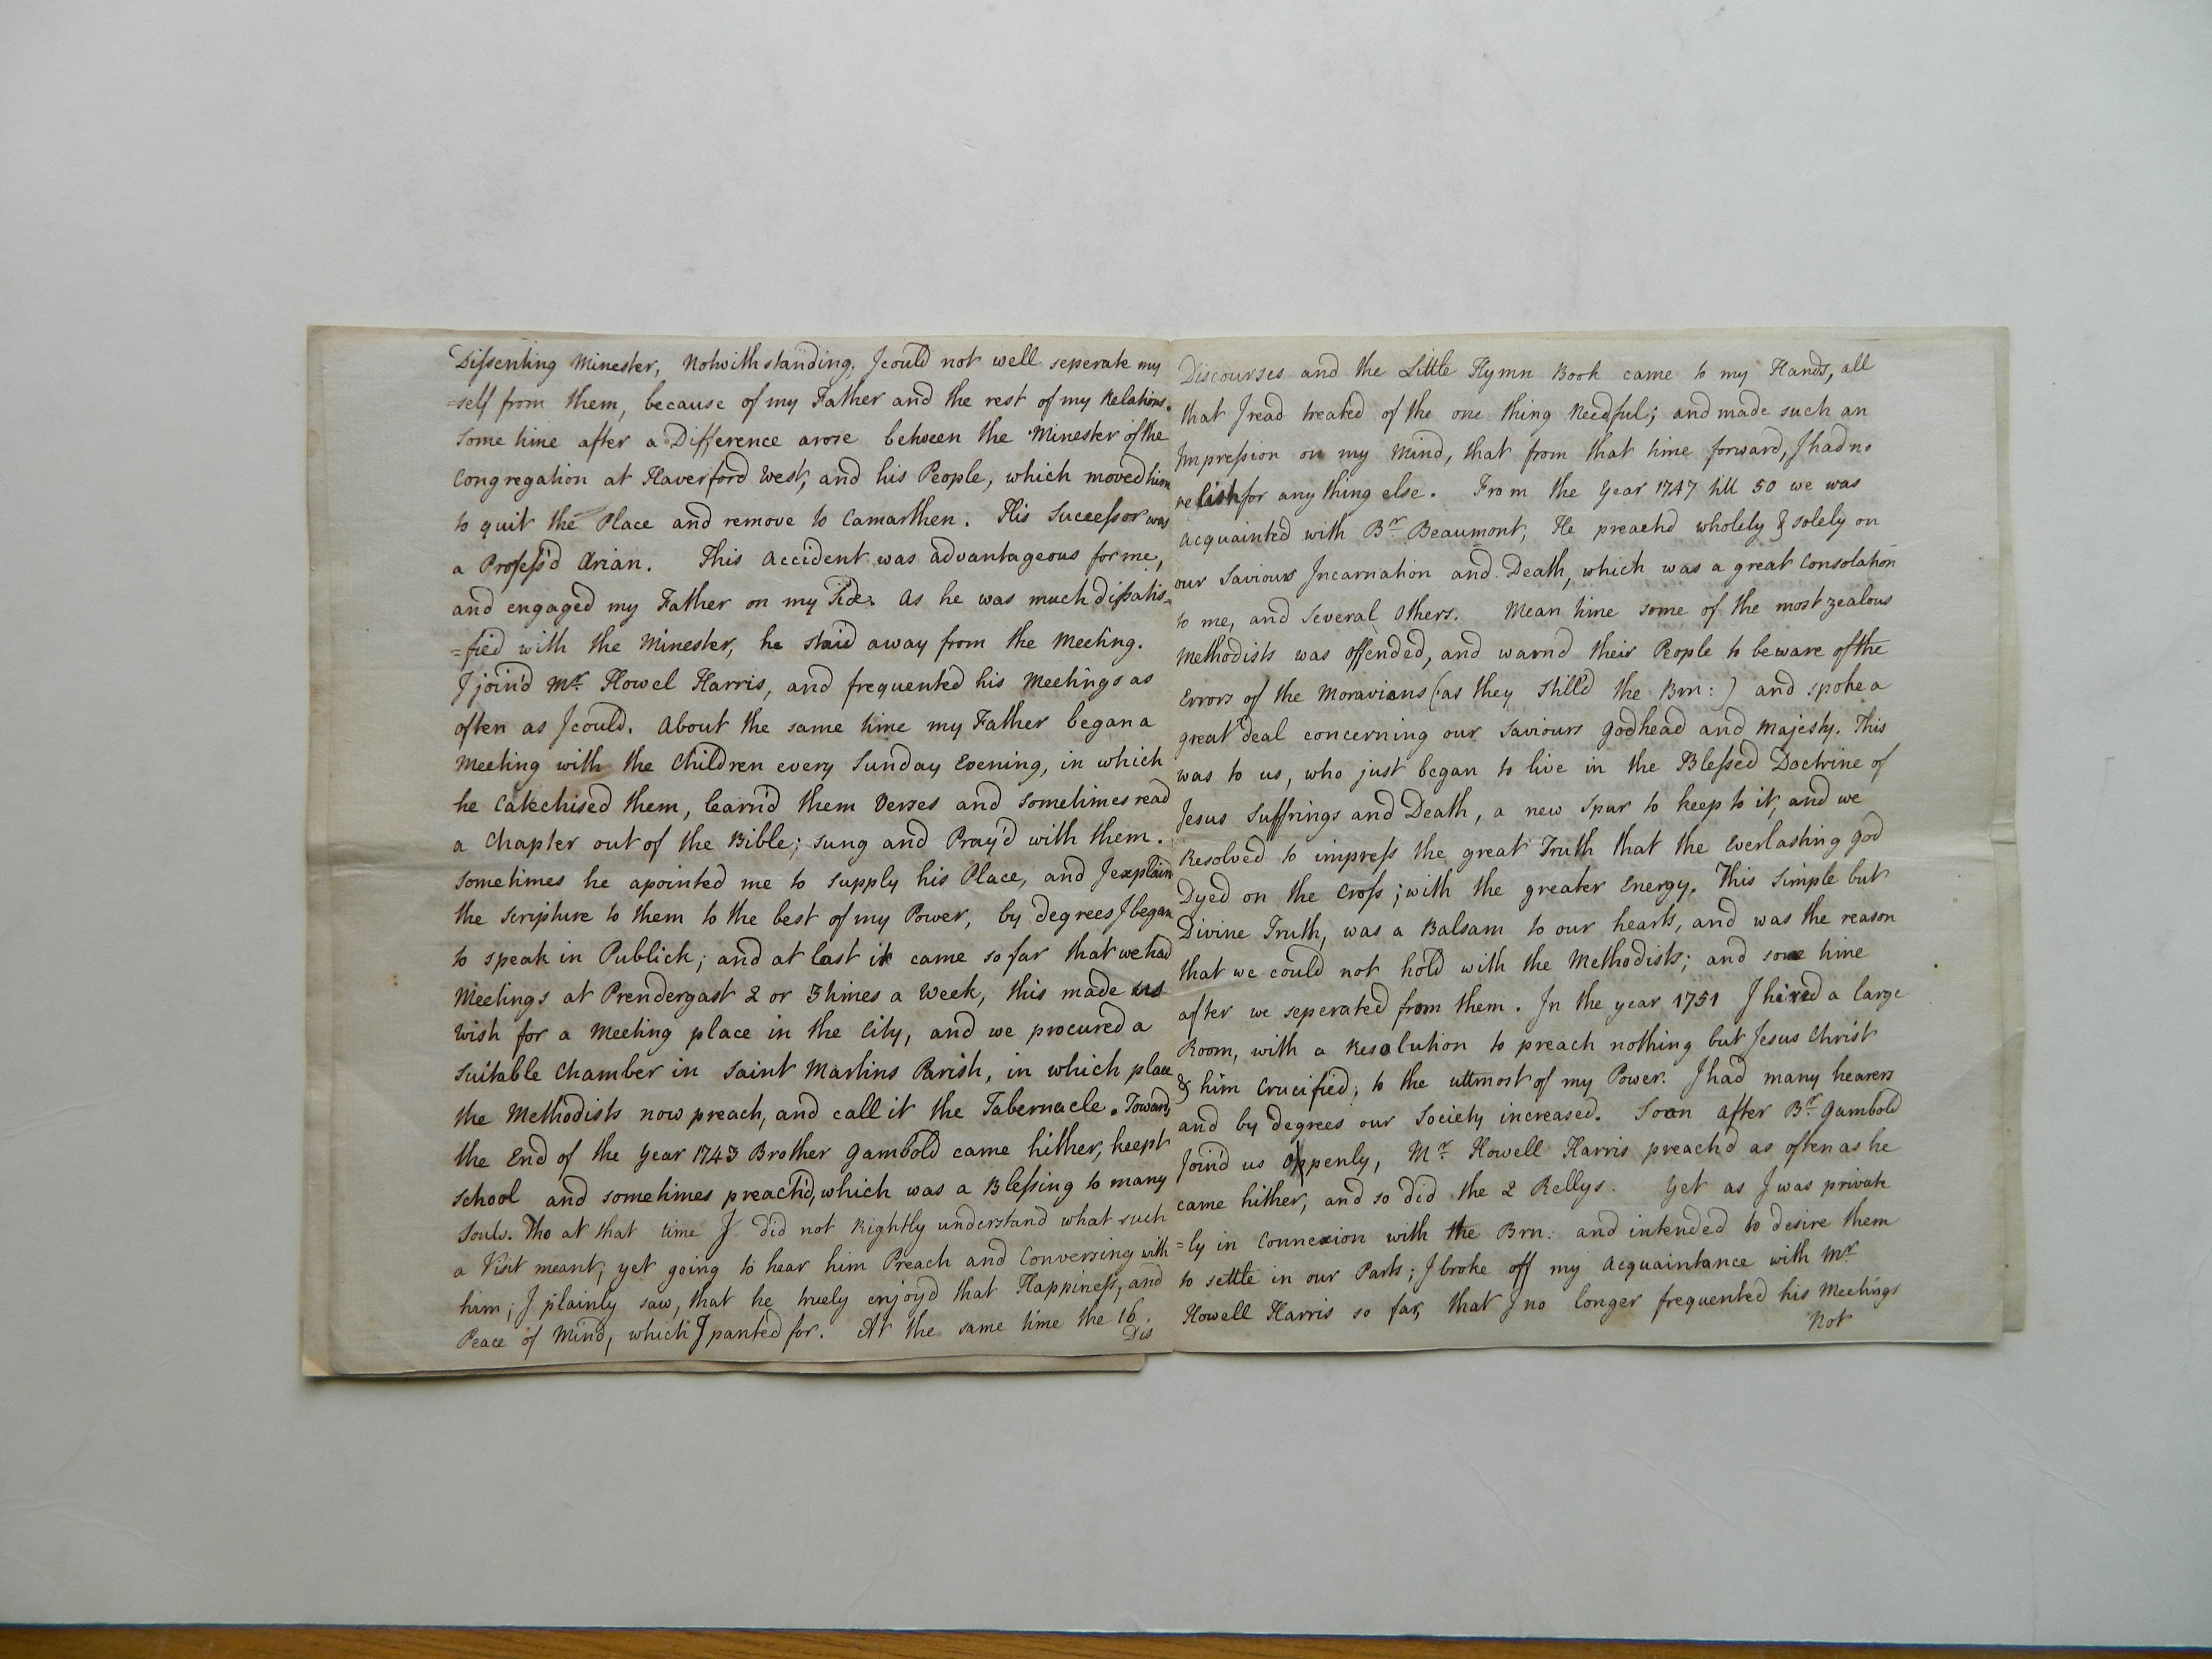 Dissenting Minester, Notwithstanding, I could not well seperate my
=self from them, because of my Father and the rest of my Relations.
Some time after a Difference arose between the Minester of the
Congregation at Haverford West, and his People, which moved him
to quit the Place and remove to Camarthen. His Successor was
a Profess'd Arian. This Accident was advantageous for me,
and engaged my Father on my Side. As he was much dissatis=
=fied with the Minester, he staid away from the Meeting.
I join'd Mr. Howel Harris, and frequented his Meetings as
often as I could. About the same time my Father began a
Meeting with the Children every Sunday Evening, in which
he Catechised them, learn'd them Verses and sometimes read
a Chapter out of the Bible; sung and Pray'd with them.
Sometimes he apointed me to supply his Place, and I explain
the Scripture to them to the best of my Power, by degrees I began
to speak in Publick; and at last it came so far that we had
Meetings at Prendergast 2 or 3 times a Week, this made us
wish for a Meeting place in the City, and we procured a
Suitable Chamber in Saint Martins Parish, in which place
the Methodists now preach, and call it the Tabernacle. Toward
the End of the Year 1743 Brother Gambold came hither, keept
School and sometimes preach'd, which was a Blessing to many
Souls. Tho at that time I did not Rightly understand what such
a Visit meant, yet going to hear him Preach and Conversing with
him; I plainly saw, that he truely enjoy'd that Happiness, and
Peace of Mind, which I panted for. At the same time the 16.
Dis
Discourses and the Little Hymn Book came to my Hands, all
that I read treated of the one thing Needful; and made such an
Impression on my Mind, that from that time forward, I had no
relish for any thing else. From the Year 1747 till 50 we was
Acquainted with Br. Beaumont, He preach'd wholely & solely on
our Saviours Incarnation and Death, which was a great Consolation
to me, and Several Others. Mean time some of the most zealous
Methodists was offended, and warn'd their People to beware of the
Errors of the Moravians (as they Still'd the Brn:) and spoke a
great deal concerning our Saviours Godhead and Majesty. This
was to us, who just began to live in the Blessed Doctrine of
Jesus Suffrings and Death, a new Spur to keep to it, and we
Resolved to impress the great Truth that the Everlasting God
Dyed on the Cross; with the greater Energy. This Simple but
Divine Truth, was a Balsam to our hearts, and was the reason
that we could not hold with the Methodists; and some time
after we seperated from them. In the year 1751 I hired a large
Room, with a Resolution to preach nothing but Jesus Christ
& him Crucified, to the uttmost of my Power. I had many hearers
and by degrees our Society increased. Soon after Br. Gambold
Join'd us oppenly, Mr. Howell Harris preach'd as often as he
came hither, and so did the 2 Rellys. Yet as I was private
=ly in Connexion with the Brn: and intended to desire them
to settle in our Parts; I broke off my Acquaintance with Mr
Howell Harris so far, that I no longer frequented his Meetings
Not